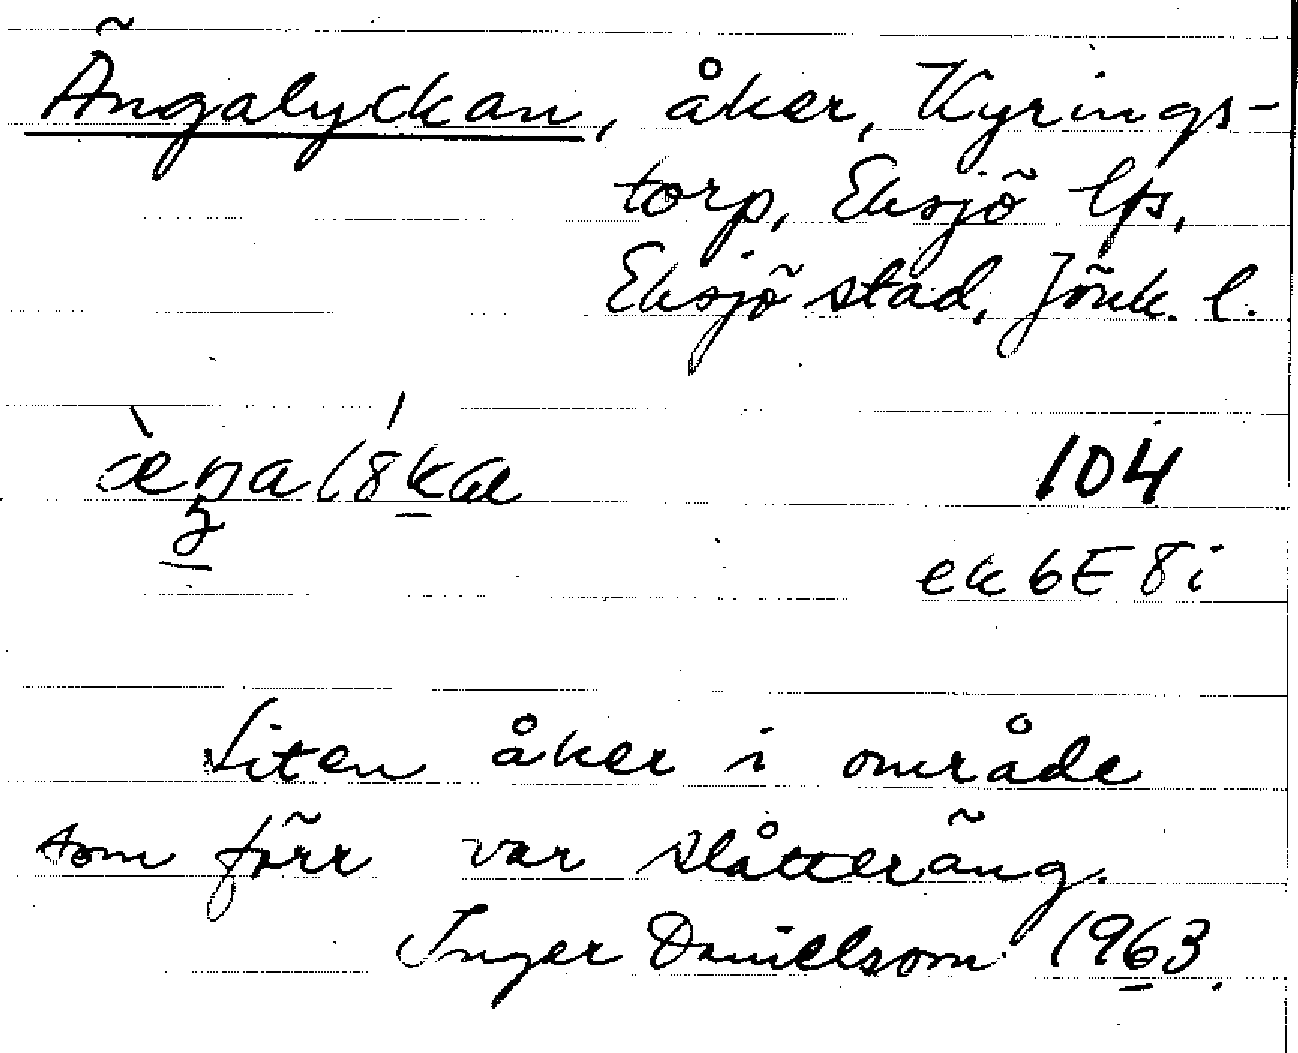 Ängalyckan, åker, Kyrings-
torp, Eksjö lfs,
Eksjö stad, Jönk. l.
104
ek 6E 8i
Liten åker i område
som förr var slåtteräng.
Inger Danielsson 1963.